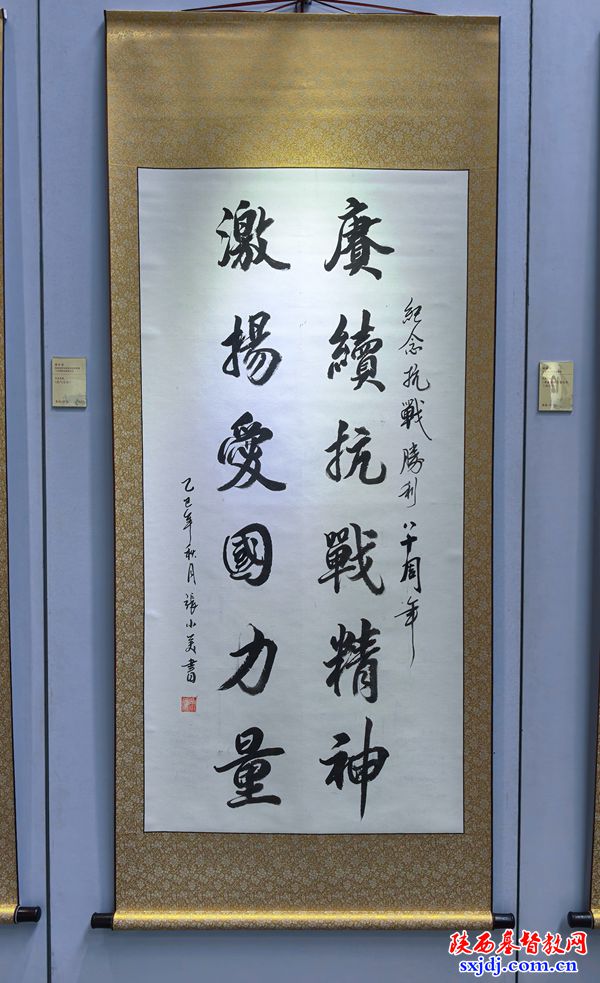 紀念抗戰勝利八十周年
賡續抗戰精神
激揚愛國力量
乙巳年秋月張小美書
陕西基督教网
sxjdj.com.cn